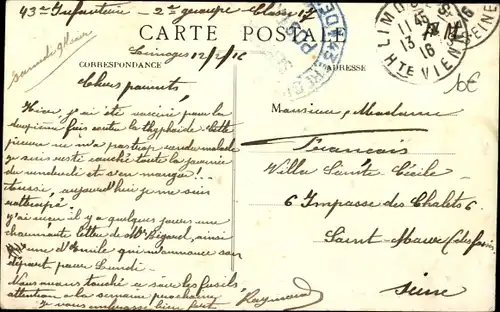 43e Infanterie - 2e groupe - Classe 17
CARTE POSTALE
Limoges 12/2/16
CORRESPONDANCE
ADRESSE
LIMOGES
11 45
13
16
HTE VIENNE
10€
Chers parents,
Hier j'ai été vacciné pour la
deuxième fois contre la thyphoïde. Cette
piqure ne m'a pas trop rendu malade
je suis resté couché toute la journée
du vendredi et s'en manger!..
Aussi, aujourd'hui je me suis
rattrapé!
J'ai reçu il y a quelques jours une
charmante lettre de Mr Bigarel, ainsi
qu'une d'Emile qui m'annonce son
départ pour Lundi.
Nous avons touché ce soir les fusils
attention à la semaine prochaine
Je vous embrasse bien fort
Raymond
Monsieur, Madame
Francais
Villa Sainte Cécile
6 Impasse des Chalets 6
Saint-Maur (des fossés)
Seine